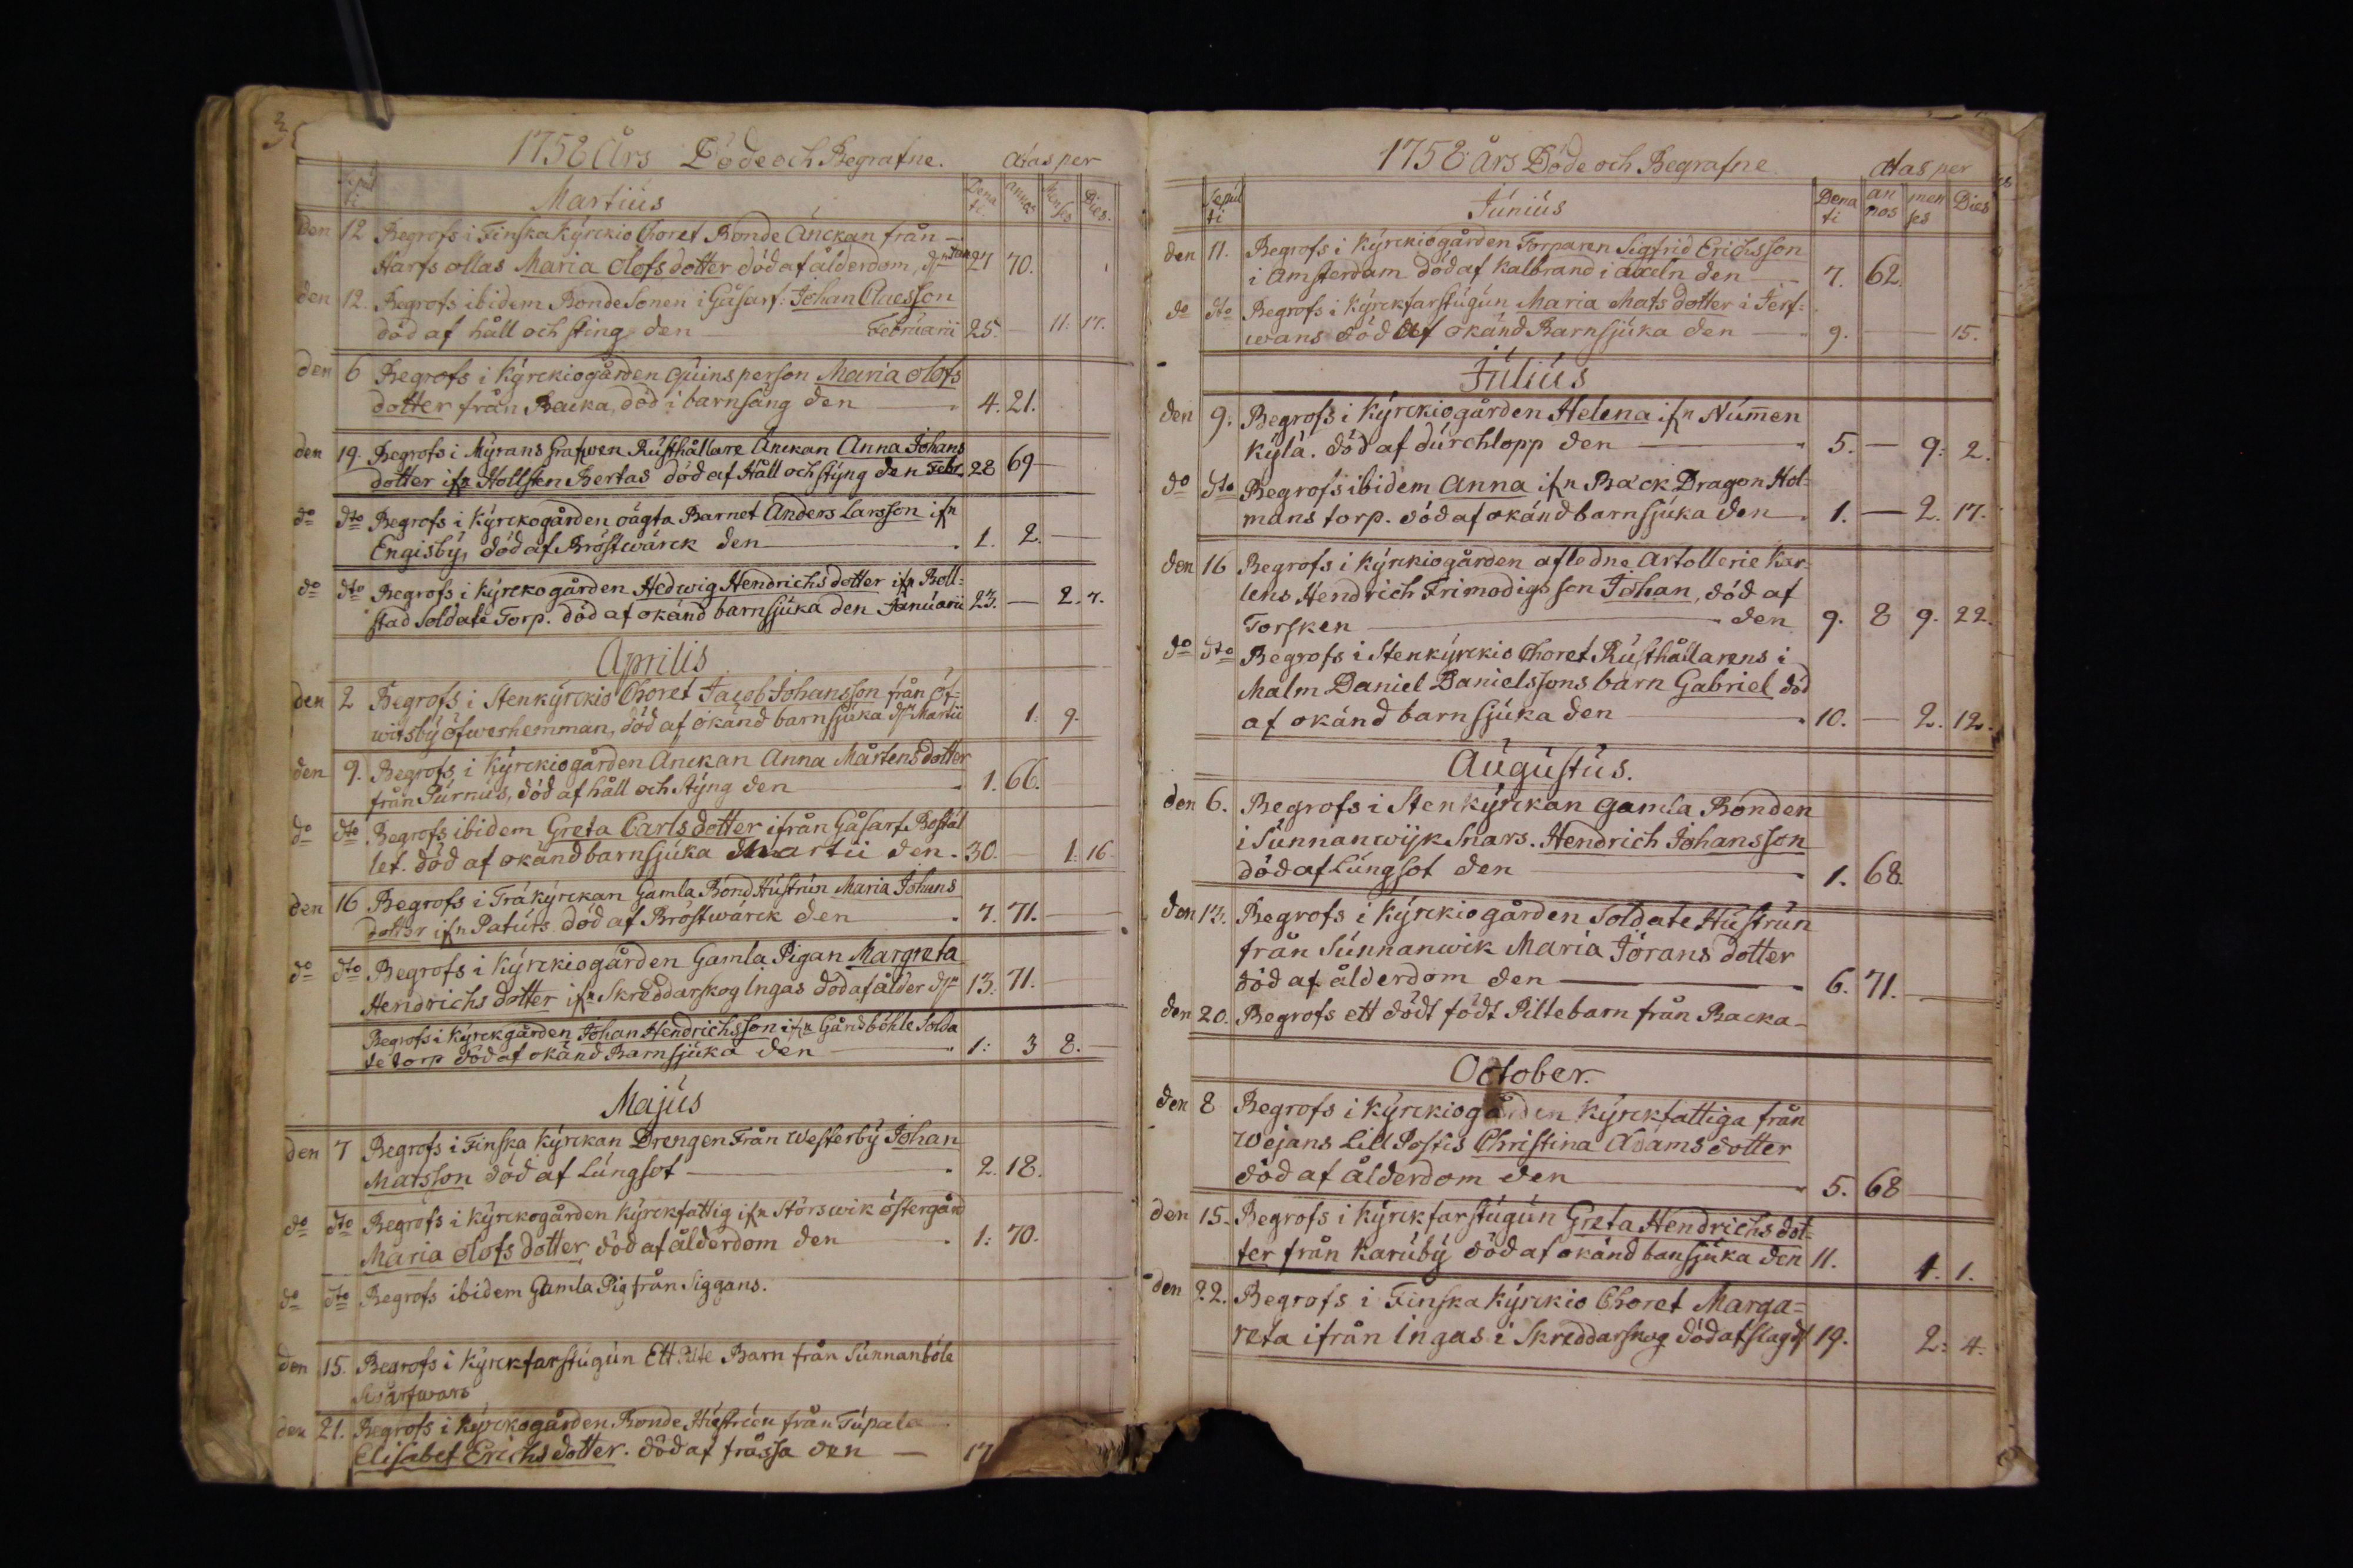 1758 Års Döde och Begrafne. Ætas per
Sepul
ti
Martius
Dena
ti
annos
Men
ses
Dies.
den 12 Begrofs i Finska Kyrckio Choret Bonde Änckan från
Harfs ollas Maria Olofs dotter död af ålderdom, dn Jan 27 70.
den 12. Begrofs ibidem Bonde Sonen i Gåsarf: Johan Claesson
död af håll och sting den Februarii 25. — 11. 17.
den 6 Begrofs i Kyrckiogården Quins person Maria Olofs
dotter från Backa, död i barnsäng den 4. 21.
den 19. Begrofs i Myrans Grafwen Rusthållare Änckan Anna Johans
dotter ifn Hollsten Bertas död af Håll och styng den Febr. 28 69
do dto Begrofs i Kyrckogården oägta Barnet Anders Larsson ifn
Engisby, död af Bröstwärck den 1. 2.
do dto Begrofs i Kyrckogården Hedwig Hendrichs dotter ifn Boll=
stad Soldate Torp. död af okänd barnsjuka den Januarii 23. — 2. 7.
Aprilis
den 2 Begrofs i Stenkyrckio Choret Jacob Johansson från Öf=
witsby öfwerhemman, död af okänd barnsjuka dn Martii 1. 9.
den 9. Begrofs i Kyrckiogården Änckan Anna Mårtens dotter
från Purnus, död af håll och styng den 1. 66.
do dto Begrofs ibidem Greta Carls dotter ifrån Gåsarf. Bostäl
let. död af okänd barnsjuka Martii den. 30. — 1. 16
den 16 Begrofs i Träkyrckan Gamla Bond Hustrun Maria Johans
dotter ifn Paturs död af Bröstwärck den 7. 71.
do dto Begrofs i Kyrckiogården Gamla Pigan Margreta
Hendrichs dotter ifn Skreddarskog Ingas död af ålder dn 13. 71.
Begrofs i Kyrckgården Johan Hendrichsson ifn Gårdsböhle Solda
te torp död af okänd Barnsjuka den 1: 3 8.
Majus
den 7 Begrofs i Finska Kyrckan Drengen Från Westerby Johan
Matsson död af Lungsot 2. 18.
do dto Begrofs i Kyrckogården Kyrckfattig ifn Storswik östergård
Maria Olofs dotter död af ålderdom den 1: 70.
do dto Begrofs ibidem Gamla Pig från Siggans.
den 15. Begrofs i Kyrckfarstugun Ett Pilte Barn från Sunnanböle
den 21. Begrofs i Kyrckogården Bonde Hustrun från Tupala
Elisabet Erichs dotter. död af frässa den — 17
1758 Års Döde och Begrafne Ætas per
Sepul
ti
Junius
Dena
ti
an
nos
men
ses
Dies
den 11. Begrofs i Kyrckiogården Torparen Sigfrid Erichsson
i Amsterdam död af Kalbrand i axeln den 7. 62.
do dto Begrofs i Kyrckfarstugun Maria Mats dotter i Jerf=
wans död af okänd Barnsjuka den 9. — 15.
Julius
den 9. Begrofs i Kyrckiogården Helena ifn Numen
kylä. död af durchlopp den 5. — 9: 2.
do dto Begrofs ibidem Anna ifn Back Dragon Hol=
mans torp. död af okänd barnsjuka den 1. — 2. 17.
den 16 Begrofs i Kyrckiogården afledne Artollerie Kar=
lens Hendrich Frimodigs son Johan, död af
Torsken den 9. 8 9. 22.
do dto Begrofs i Stenkyrckio Choret Rusthållarens i
Malm Daniel Danielssons barn Gabriel död
af okänd barnsjuka den 10. — 2. 12.
Augustus.
den 6. Begrofs i Stenkyrckan gamla Bonden
i Sunnanwijk Snars. Hendrich Johansson
död af Lungsot den 1. 68.
den 13. Begrofs i Kyrckiogården Soldate Hustrun
från Sunnanwik Maria Jörans dotter
död af ålderdom den 6. 71.
den 20. Begrofs ett dödt födt Piltebarn från Backa
October.
den 8 Begrofs i Kyrckiogården Kyrckfattiga från
Wejans Lill Postis Christina Adams dotter
död af ålderdom den 5. 68
den 15. Begrofs i Kyrckfarstugun Greta Hendrichs dot=
ter från Karuby död af okänd bansjuka den 11. 1. 1.
den 22. Begrofs i Finska Kyrckio Choret Marga=
reta ifrån Ingas i Skreddarskog död af slag dn 19. 2: 4.